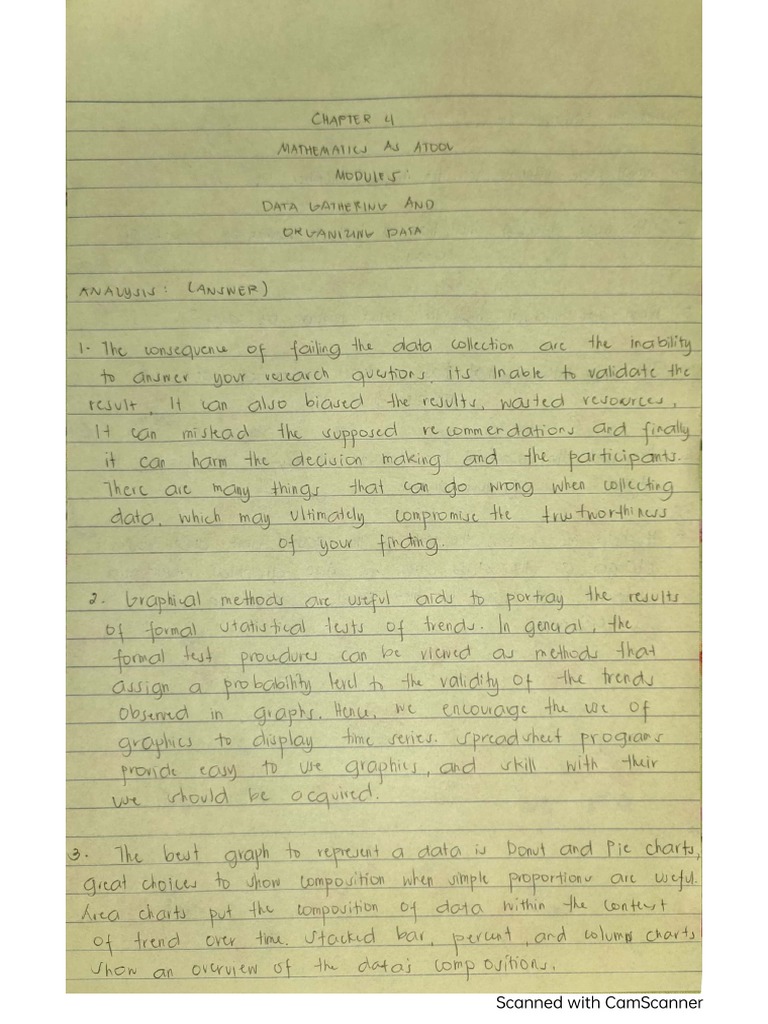 CHAPTER 4
MATHEMATICS AS A TOOL
MODULE 5:
DATA GATHERING AND
ORGANIZING DATA
ANALYSIS: (ANSWER)
1. The consequence of failing the data collection are the inability
to answer your research questions, its Inable to validate the
result, It can also biased the results, wasted resources,
It can mislead the supposed recommendations and finally
it can harm the decision making and the participants.
There are many things that can go wrong when collecting
data, which may ultimately compromise the trustworthiness
of your finding.
2. Graphical methods are useful aids to portray the results
of formal statistical tests of trends. In general, the
formal test procedures can be viewed as methods that
assign a probability level to the validity of the trends
observed in graphs. Hence, we encourage the use of
graphics to display time series. Spreadsheet programs
provide easy to use graphics, and skill with their
use should be acquired.
3. The best graph to represent a data is Donut and Pie charts,
great choices to show composition when simple proportions are useful.
Area charts put the composition of data within the context
of trend over time. Stacked bar, percent, and column charts
show an overview of the data's compositions.
Scanned with CamScanner